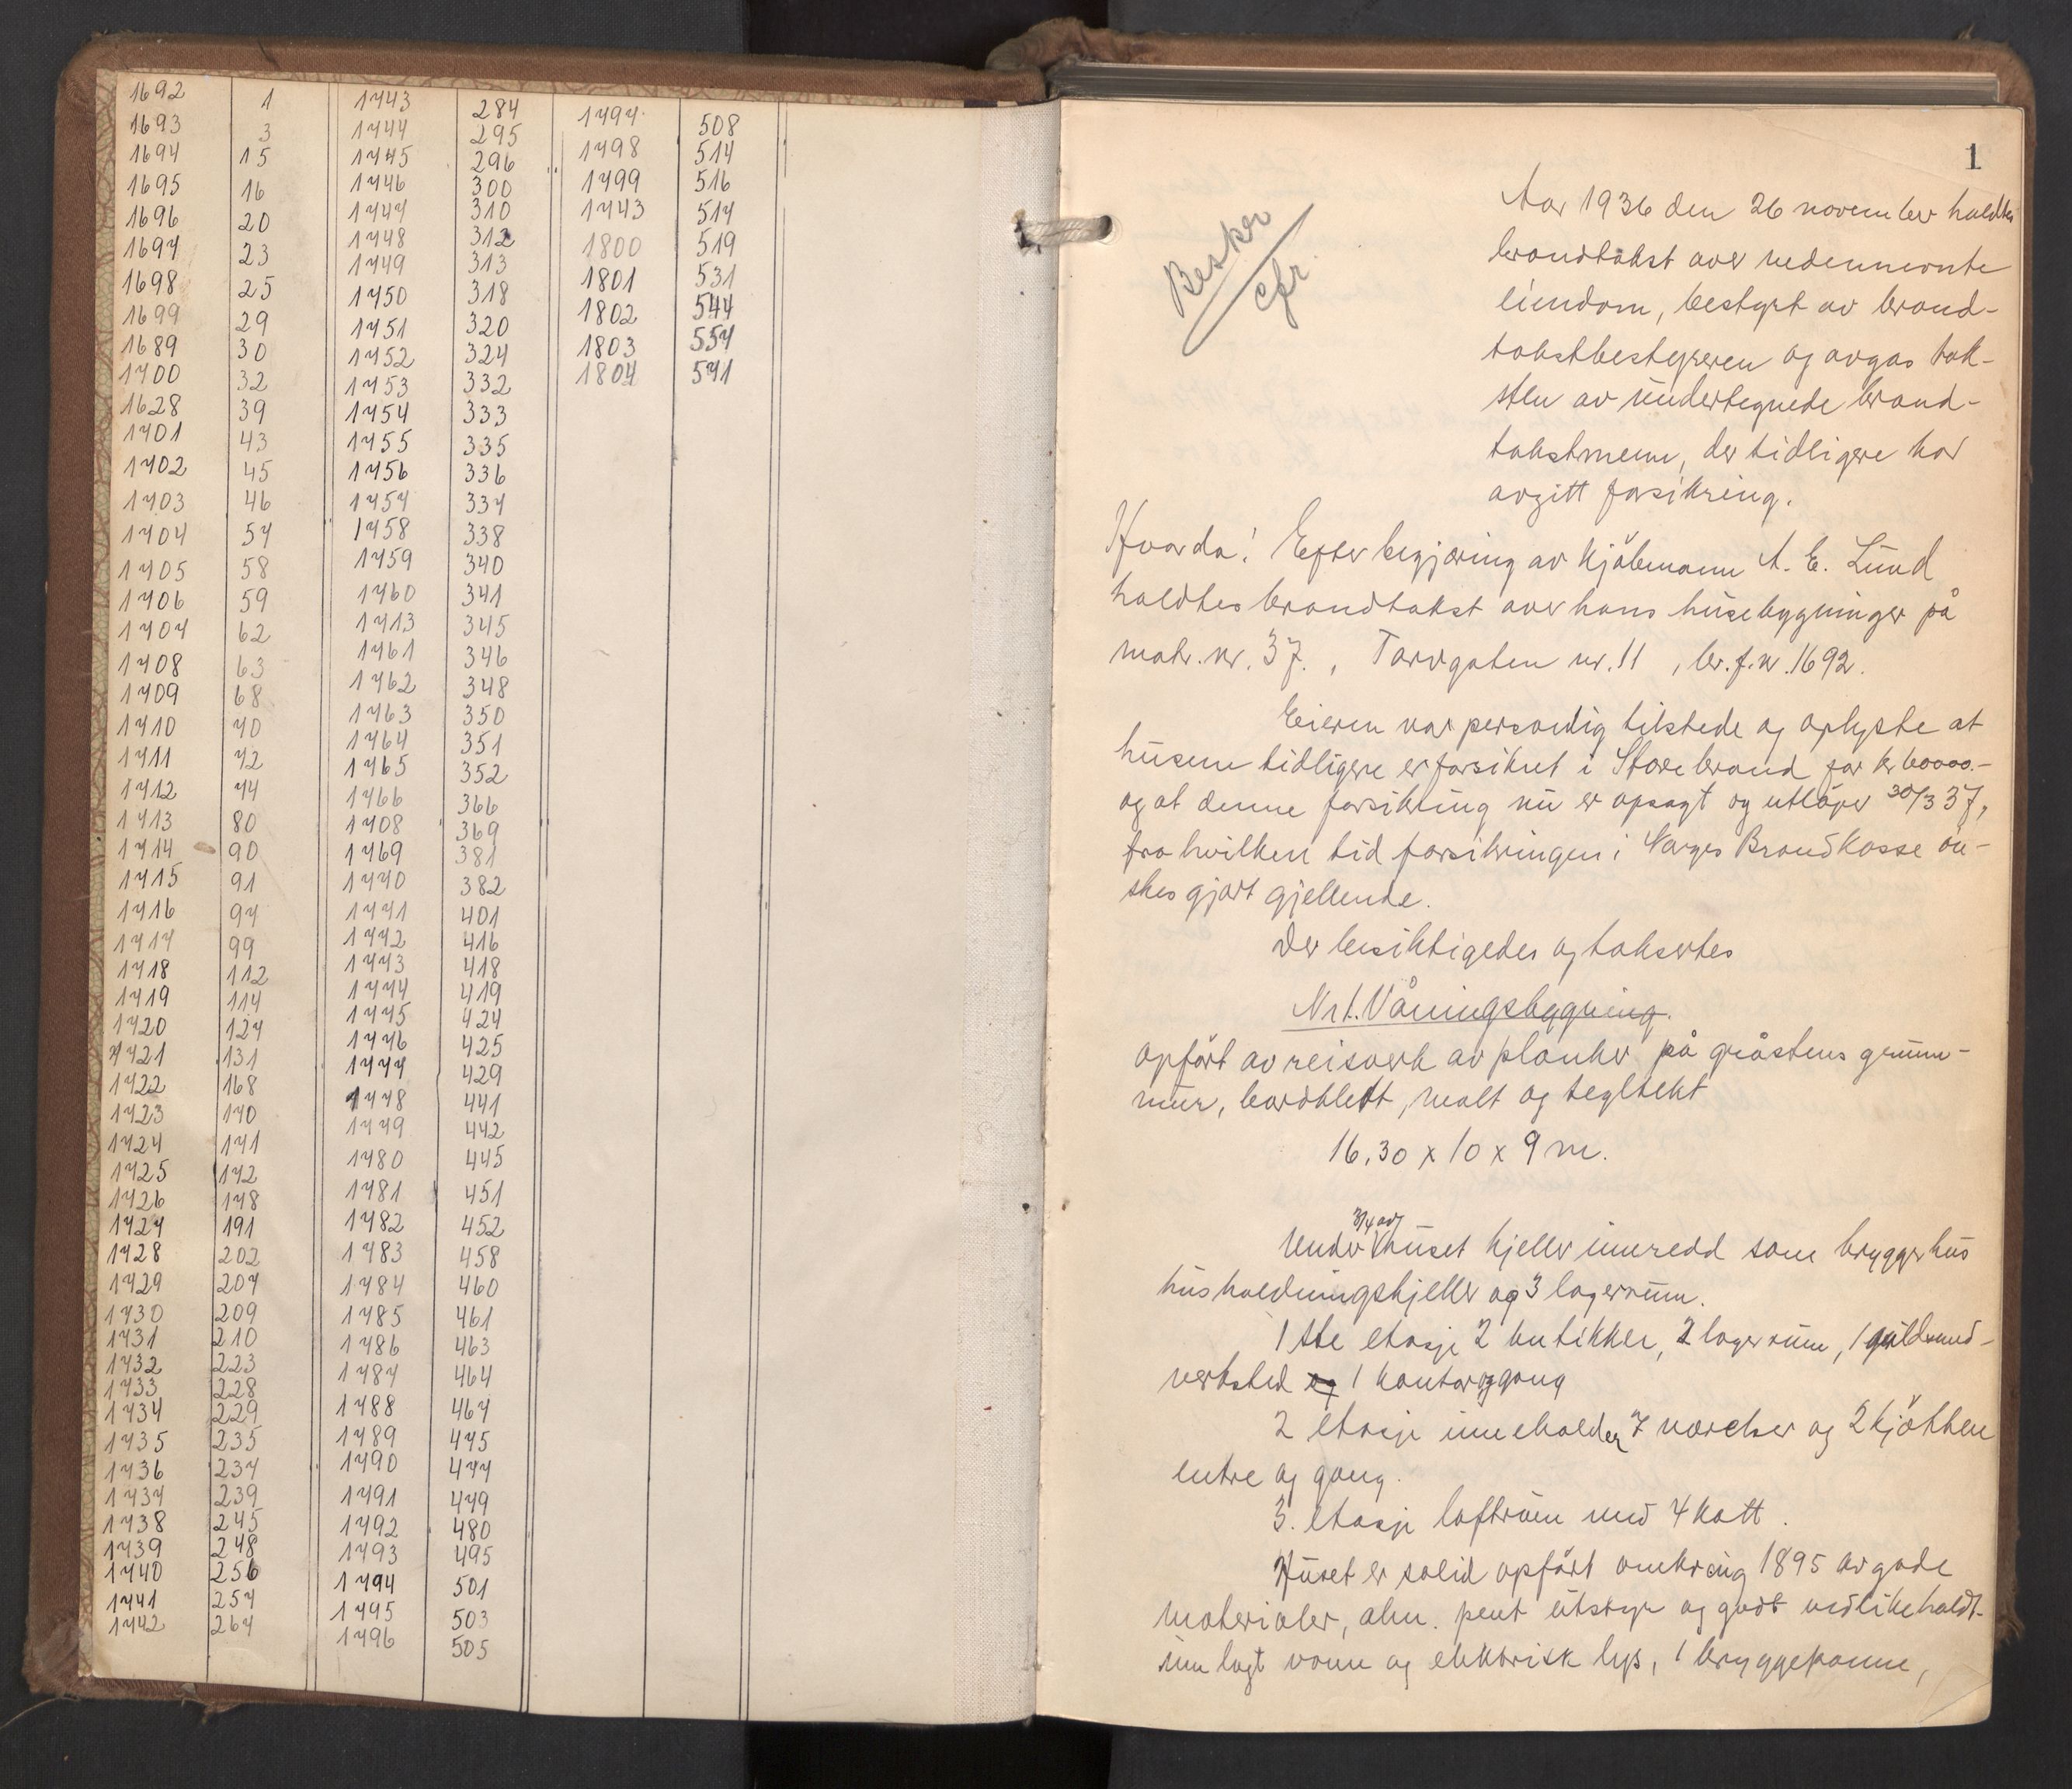 1692 1
1693 3
1694 15
1695 16
1696 20
1697 23
1698 25
1699 29
1689 30
1700 32
1628 39
1701 43
1702 45
1703 46
1704 57
1705 58
1706 59
1707 62
1708 63
1709 68
1710 70
1711 72
1712 74
1713 80
1714 90
1715 91
1716 97
1717 99
1718 112
1719 114
1720 127
1721 131
1722 168
1723 170
1724 171
1725 172
1726 178
1727 191
1728 202
1729 207
1730 209
1731 210
1732 223
1733 228
1734 229
1735 235
1736 237
1737 239
1738 245
1739 248
1740 256
1741 257
1742 267
1743 284
1744 295
1745 296
1746 300
1747 310
1748 312
1749 313
1750 318
1751 320
1752 324
1753 332
1754 333
1755 335
1756 336
1757 337
1758 338
1759 340
1760 341
1713 345
1761 346
1762 348
1763 350
1764 351
1765 352
1766 366
1708 369
1769 381
1770 382
1771 401
1772 416
1773 418
1774 419
1775 424
1776 425
1777 429
1778 441
1779 442
1780 445
1781 451
1782 452
1783 458
1784 460
1785 461
1786 463
1787 464
1788 467
1789 475
1790 477
1791 479
1792 480
1793 495
1794 501
1795 503
1796 505
1797 508
1798 514
1799 516
1743 517
1800 519
1801 531
1802 544
1803 557
1804 571
1
Beskr
cfr
Aar 1936 den 26 november holdtes
brandtakst over nedennevnte
eiendom, bestyrt av brand-
takstbestyreren og avgas tak-
sten av undertegnede brand-
takstmenn, der tidligere har
avgitt forsikring.
Hvorda! Efter begjæring av kjöbmann A. E. Lund
holdtes brandtakst over hans husebygninger på
matr. nr. 37., Torvgaten nr. 11, br. f. nr. 1692.
Eieren var personlig tilstede og oplyste at
husene tidligere er forsikret i Storebrand for kr 60000.-
og at denne forsikring nu er opsagt og utlöper 30/3 37,
fra hvilken tid forsikringen i Norges Brandkasse ön-
skes gjort gjellende.
Der besiktigedes og taksertes
Nr 1. Våningsbygning.
opfört av reisverk av planker på gråstens grunn-
mur, bordkledt, malt og tegltekt
16.30 x 10 x 9 m.
Under 3/4 av huset kjeller innredd som bryggerhus
husholdningskjeller og 3 lagerrum.
1ste etasje 2 butikker, 2 lagerrum, 1 gullsmed-
verksted og 1 kontor og gang
2 etasje inneholder 7 værelser og 2 kjökken
entre og gang.
3. etasje loftrum med 4 kott.
Huset er solid opfört omkring 1895 av gode
materialer, alm. pent utstyr og godt vedlikeholdt.
innlagt vann og elektrisk lys, 1 bryggepanne,